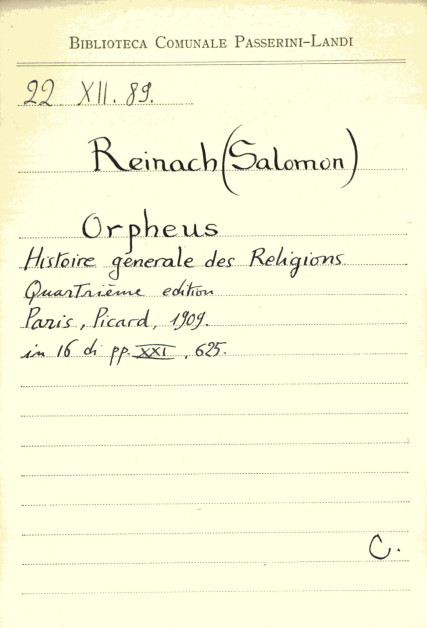 BIBLIOTECA COMUNALE PASSERINI-LANDI
22 XII. 89.
Reinach (Salomon)
Orpheus
Histoire génerale des Religions
Quartrième edition
Paris, Picard, 1909.
in 16 di pp. XXI, 625.
C.